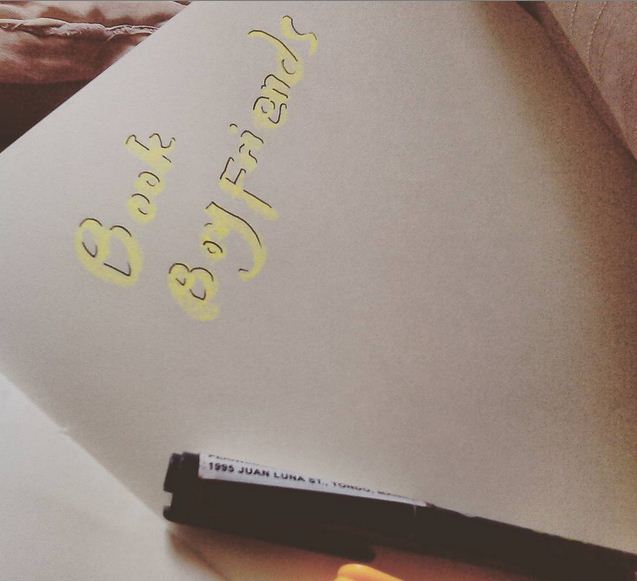 Book
Boyfriends
1995 JUAN LUNA ST., TONDO,